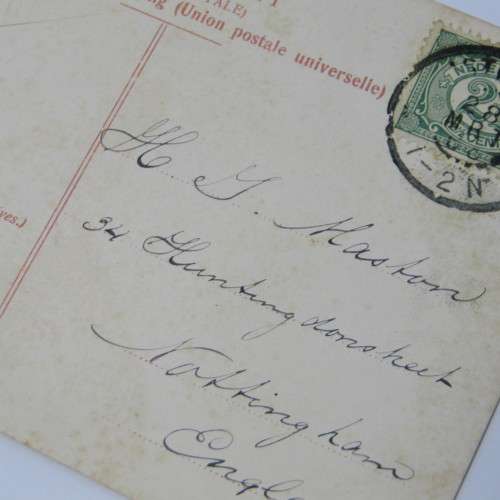 TALE)
(Union postale universelle)
NEDE
2
28
MRT
1-2N
H. G. Maston
34 Huntingdonstreet
Nottingham
Engla
ves.)